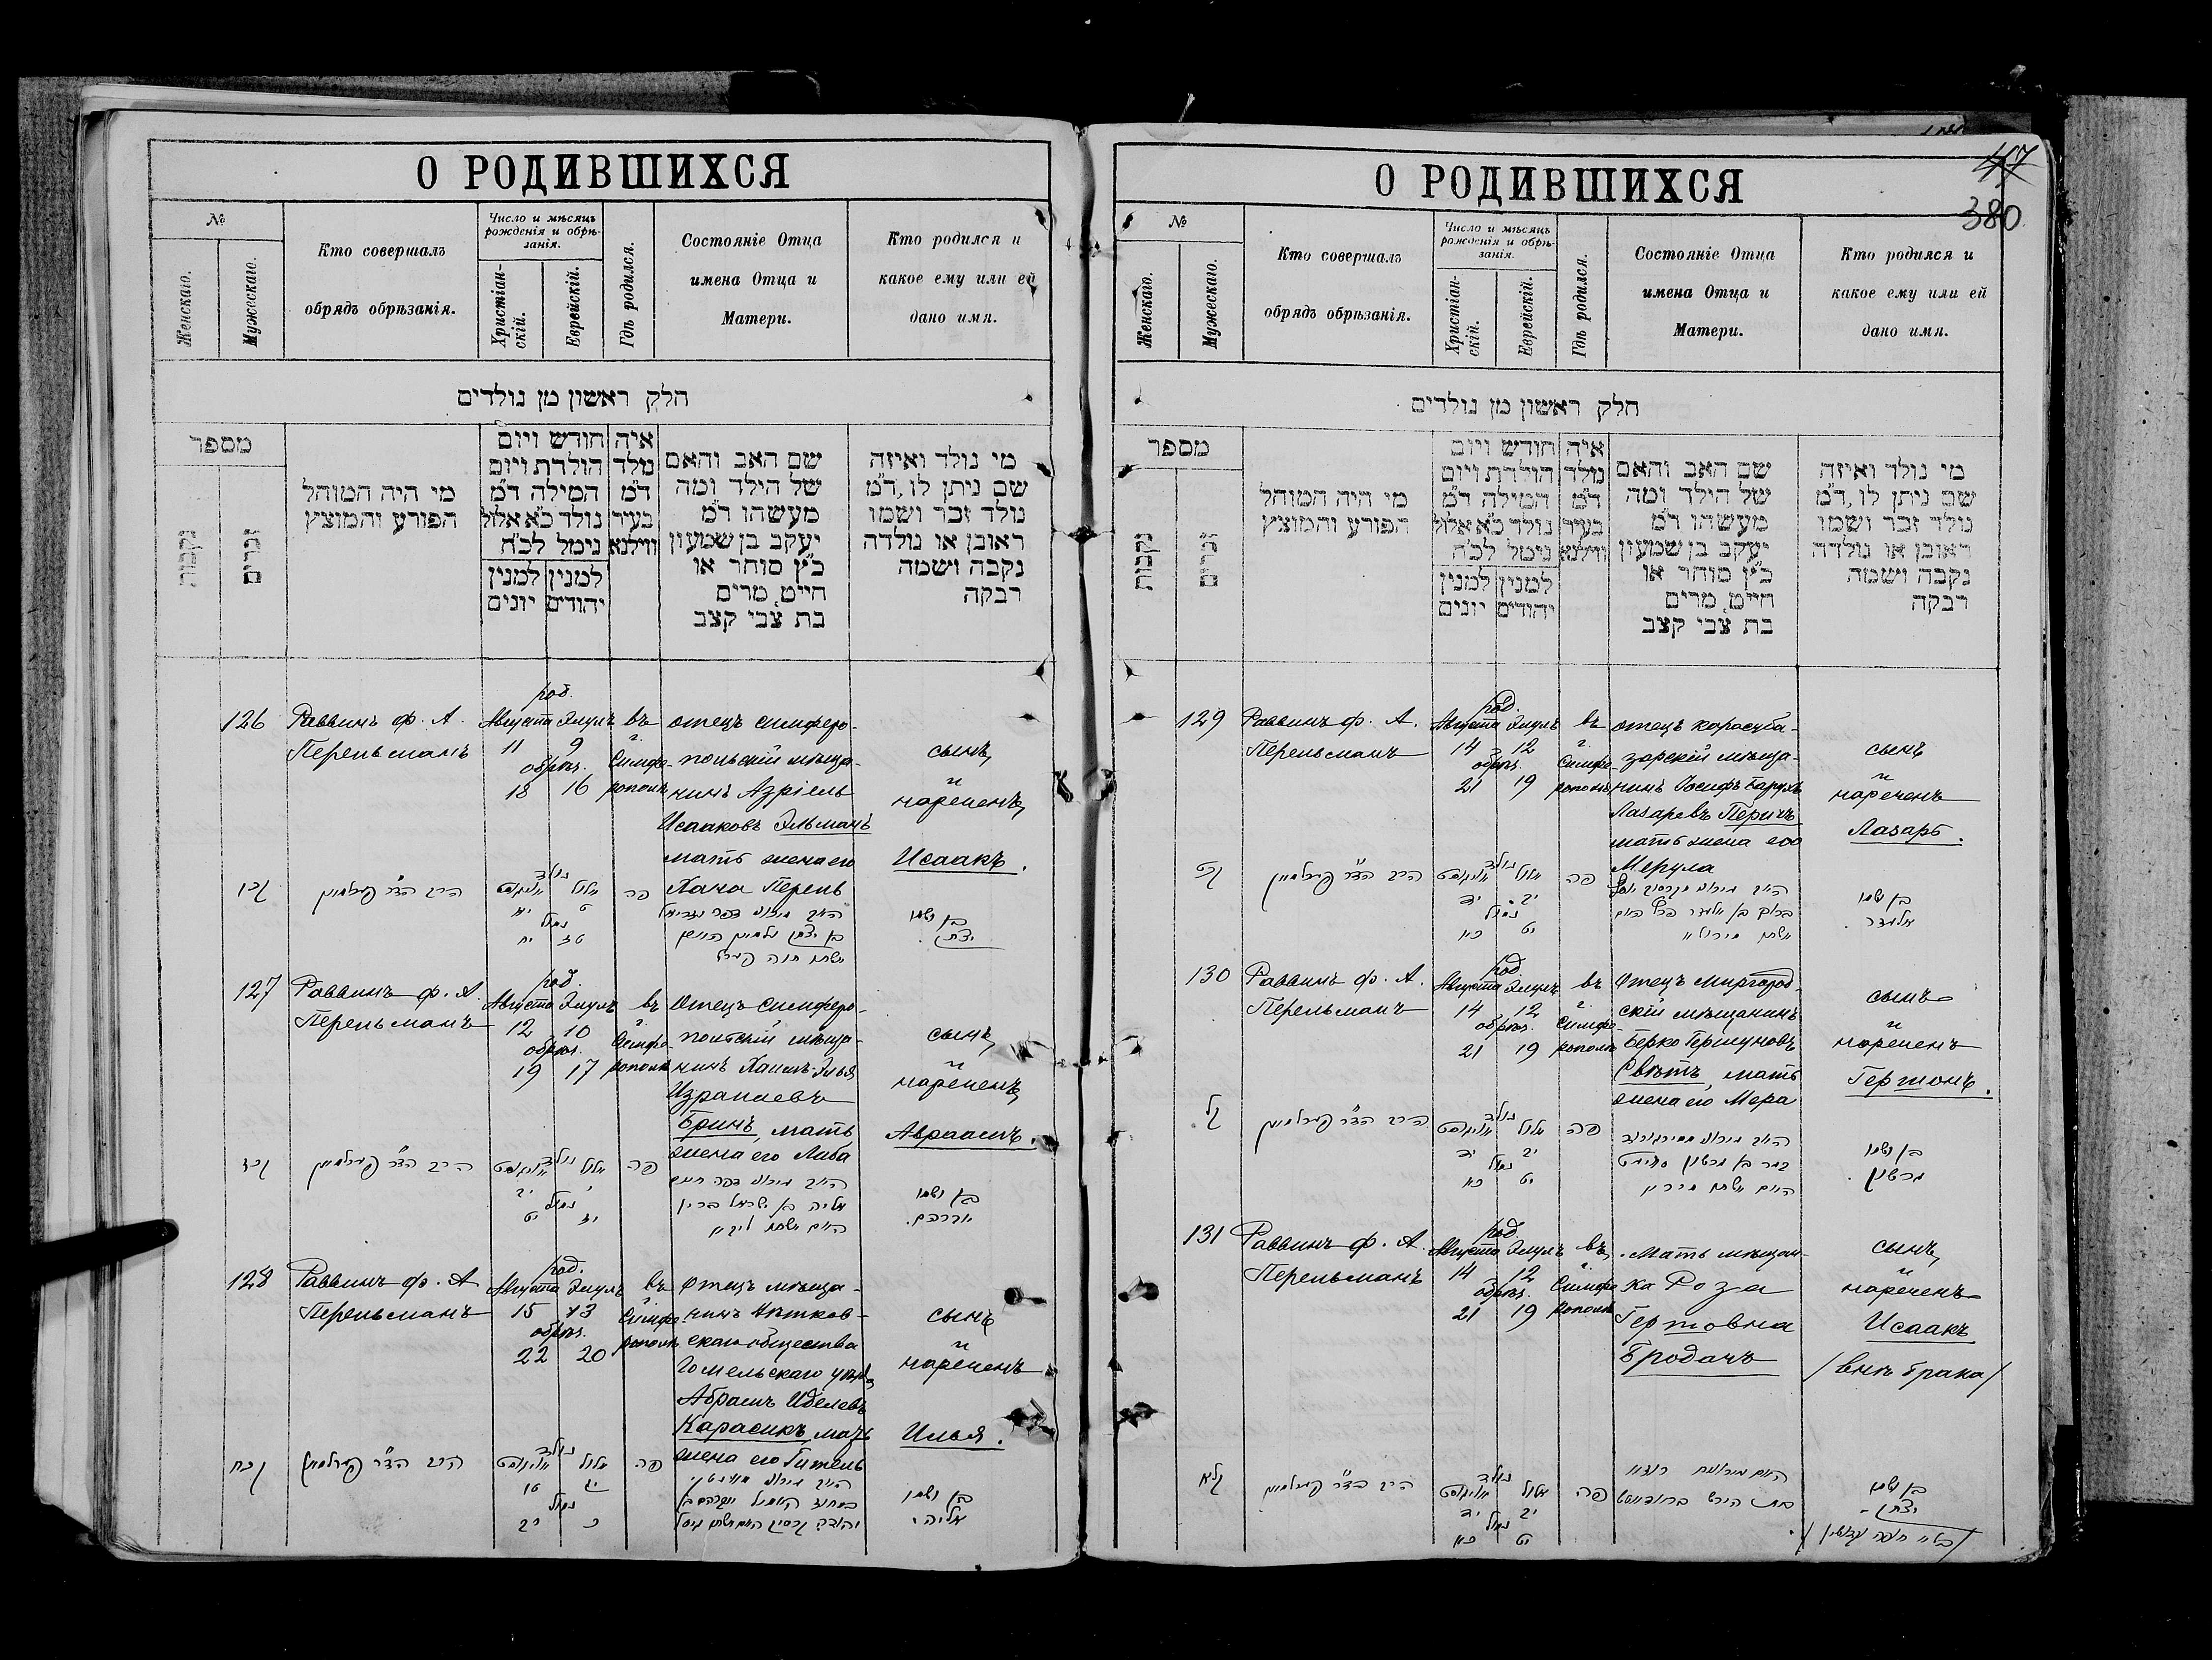 О РОДИВШИХСЯ
№
Женскаго.
Мужескаго.
Кто совершалъ
обрядъ обрѣзанія.
Число и мѣсяцъ
рожденія и обрѣ-
занія.
Христіан-
скій.
Еврейскій.
Гдѣ родился.
Состояніе Отца
имена Отца и
Матери.
Кто родился и
какое ему или ей
дано имя.
חלק ראשון מן נולדים
מספר
נקבות
זכרים
מי היה המוהל
הפורע והמוצץ
חודש ויום
הולדת ויום
המילה ד"מ
נולד כ"א אלול
נימל לכ"ח
למנין יהודים
למנין יונים
איה
נולד
ד"מ
בעיר
ווילנא
שם האב והאם
של הילד ומה
מעשהו ד"מ
יעקב בן שמעון
כ"ץ סוחר או
חייט, מרים
בת צבי קצב
מי נולד ואיזה
שם ניתן לו, ד"מ
נולד זכר ושמו
ראובן או נולדה
נקבה ושמה
רבקה
126
Раввинъ ф. А.
Перельманъ
род.
Августа Элулъ
11 9
обрѣз.
18 16
въ
г.
Симфе-
рополѣ
отецъ симферо-
польскій мѣща-
нинъ Азріель
Исааковъ Эльманъ
мать жена его
Хана Перель
сынъ
и
нареченъ
Исаакъ.
קכו
הרב הד"ר פערלמאן
נולד
אלול אויגוסט
ט יא
נמול
טז יח
פה
בן ושמו
יצחק.
127
Раввинъ ф. А.
Перельманъ
род.
Августа Элулъ
12 10
обрѣз.
19 17
въ
г.
Симфе-
рополѣ
Отецъ симферо-
польскій мѣща-
нинъ Хаимъ-Элья
Израилевъ
Бринъ, мать
жена его Либа
сынъ
и
нареченъ
Авраамъ.
קכז
הרב הד"ר פערלמאן
נולד
אלול אויגוסט
י יב
נמול
יז יט
פה
בן ושמו
אברהם.
128
Раввинъ ф. А.
Перельманъ
род.
Августа Элулъ
15 13
обрѣз.
22 20
въ
г.
Симфе-
рополѣ
Отецъ мѣща-
нинъ Вѣтков-
скаго общества
Гомельскаго уѣзда
Абрамъ Иделевъ
Карасикъ, мать
жена его Гитель
сынъ
и
нареченъ
Илья.
קכח
הרב הד"ר פערלמאן
נולד
אלול אויגוסט
יג טו
נמול
כ כב
פה
בן ושמו
אליהו.
47
380
О РОДИВШИХСЯ
№
Женскаго.
Мужескаго.
Кто совершалъ
обрядъ обрѣзанія.
Число и мѣсяцъ
рожденія и обрѣ-
занія.
Христіан-
скій.
Еврейскій.
Гдѣ родился.
Состояніе Отца
имена Отца и
Матери.
Кто родился и
какое ему или ей
дано имя.
חלק ראשון מן נולדים
מספר
נקבות
זכרים
מי היה המוהל
הפורע והמוצץ
חודש ויום
הולדת ויום
המילה ד"מ
נולד כ"א אלול
נימל לכ"ח
למנין יהודים
למנין יונים
איה
נולד
ד"מ
בעיר
ווילנא
שם האב והאם
של הילד ומה
מעשהו ד"מ
יעקב בן שמעון
כ"ץ סוחר או
חייט, מרים
בת צבי קצב
מי נולד ואיזה
שם ניתן לו, ד"מ
נולד זכר ושמו
ראובן או נולדה
נקבה ושמה
רבקה
129
Раввинъ ф. А.
Перельманъ
род.
Августа Элулъ
14 12
обрѣз.
21 19
въ
г.
Симфе-
рополѣ
отецъ карасуба-
зарскій мѣща-
нинъ Іосифъ-Барухъ
Лазаревъ Перичъ
мать жена его
Мерула
сынъ
и
нареченъ
Лазарь.
קכט
הרב הד"ר פערלמאן
נולד
אלול אויגוסט
יב יד
נמול
יט כא
פה
בן ושמו
אלעזר.
130
Раввинъ ф. А.
Перельманъ
род.
Августа Элулъ
14 12
обрѣз.
21 19
въ
г.
Симфе-
рополѣ
Отецъ миргород-
скій мѣщанинъ
Берко Гершуновъ
Свѣтъ, мать
жена его Мера
сынъ
и
нареченъ
Гершонъ.
קל
הרב הד"ר פערלמאן
נולד
אלול אויגוסט
יב יד
נמול
יט כא
פה
בן ושמו
גרשון.
131
Раввинъ ф. А.
Перельманъ
род.
Августа Элулъ
14 12
обрѣз.
21 19
въ
г.
Симфе-
рополѣ
Мать мѣщан-
ка Роза
Гершовна
Бродачъ
сынъ
и
нареченъ
Исаакъ
/внѣ брака/
קלא
הרב הד"ר פערלמאן
נולד
אלול אויגוסט
יב יד
נמול
יט כא
פה
בן ושמו
יצחק.